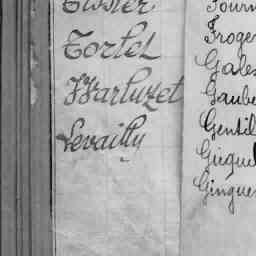 Tissier
Tortel
Warluzel
Levailly
Fourn
Froger
Gales
Gaube
Gentil
Gicquel
Ginguen